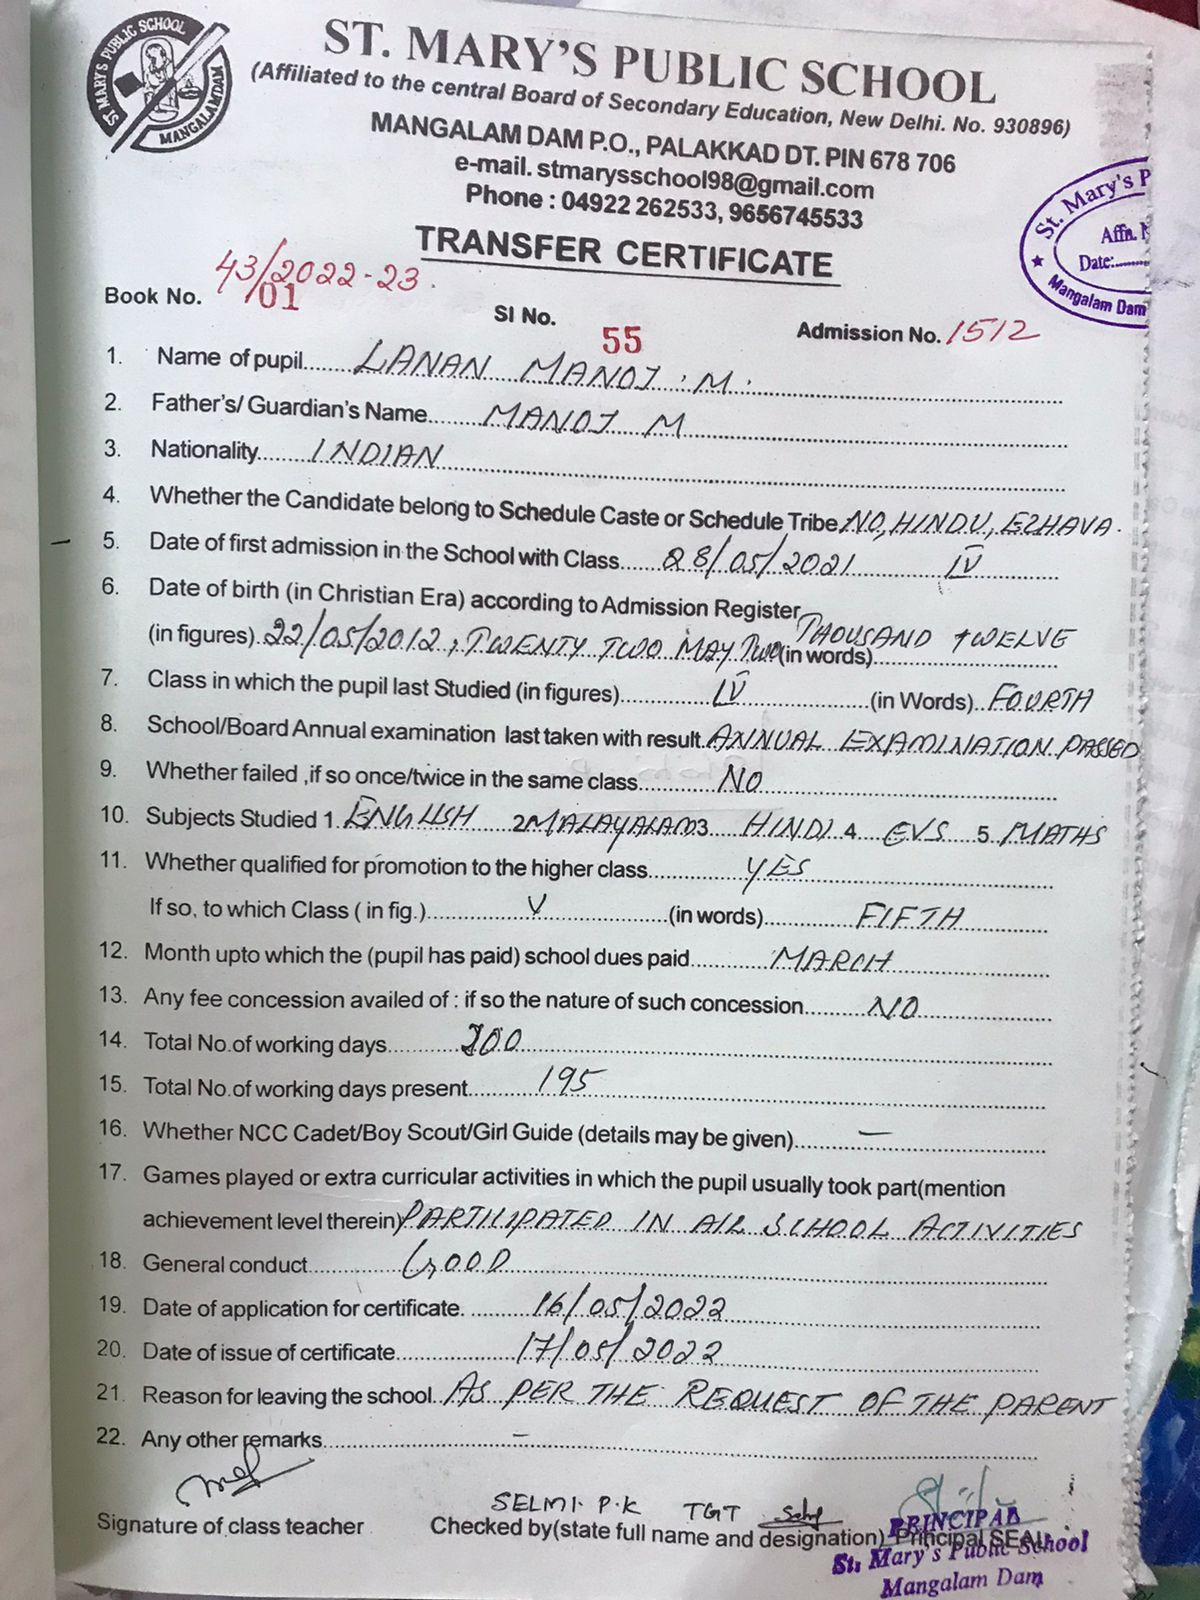 ST. MARY'S PUBLIC SCHOOL
MANGALAMDAM
ST. MARY'S PUBLIC SCHOOL
(Affiliated to the central Board of Secondary Education, New Delhi. No. 930896)
MANGALAM DAM P.O., PALAKKAD DT. PIN 678 706
e-mail. stmarysschool98@gmail.com
Phone : 04922 262533, 9656745533
St. Mary's P
Affn. N
Date:........
Mangalam Dam
TRANSFER CERTIFICATE
43/2022-23.
Book No. 01 SI No. 55 Admission No. 1512
1. Name of pupil......LANAN MANOJ . M .
2. Father's/ Guardian's Name.....MANOJ M
3. Nationality......INDIAN
4. Whether the Candidate belong to Schedule Caste or Schedule Tribe NO, HINDU, EZHAVA.
5. Date of first admission in the School with Class......28/05/2021 IV
6. Date of birth (in Christian Era) according to Admission Register
(in figures). 22/05/2012 ; TWENTY TWO MAY TWO (in words) THOUSAND TWELVE
7. Class in which the pupil last Studied (in figures)......IV......(in Words)..FOURTH
8. School/Board Annual examination last taken with result. ANNUAL EXAMINATION PASSED
9. Whether failed ,if so once/twice in the same class......NO
10. Subjects Studied 1. ENGLISH 2 MALAYALAM 3 HINDI 4 EVS 5. MATHS
11. Whether qualified for promotion to the higher class......YES
If so, to which Class ( in fig.)......V......(in words)......FIFTH
12. Month upto which the (pupil has paid) school dues paid......MARCH
13. Any fee concession availed of : if so the nature of such concession......NO
14. Total No.of working days......200
15. Total No.of working days present......195
16. Whether NCC Cadet/Boy Scout/Girl Guide (details may be given)......—
17. Games played or extra curricular activities in which the pupil usually took part(mention
achievement level therein) PARTICIPATED IN ALL SCHOOL ACTIVITIES
18. General conduct......GOOD
19. Date of application for certificate. ......16/05/2022
20. Date of issue of certificate......17/05/2022
21. Reason for leaving the school. AS PER THE REQUEST OF THE PARENT
22. Any other remarks......–
SELMI. P.K TGT
Signature of class teacher Checked by(state full name and designation) Principal SEAL
PRINCIPAL
St. Mary's Public School
Mangalam Dam